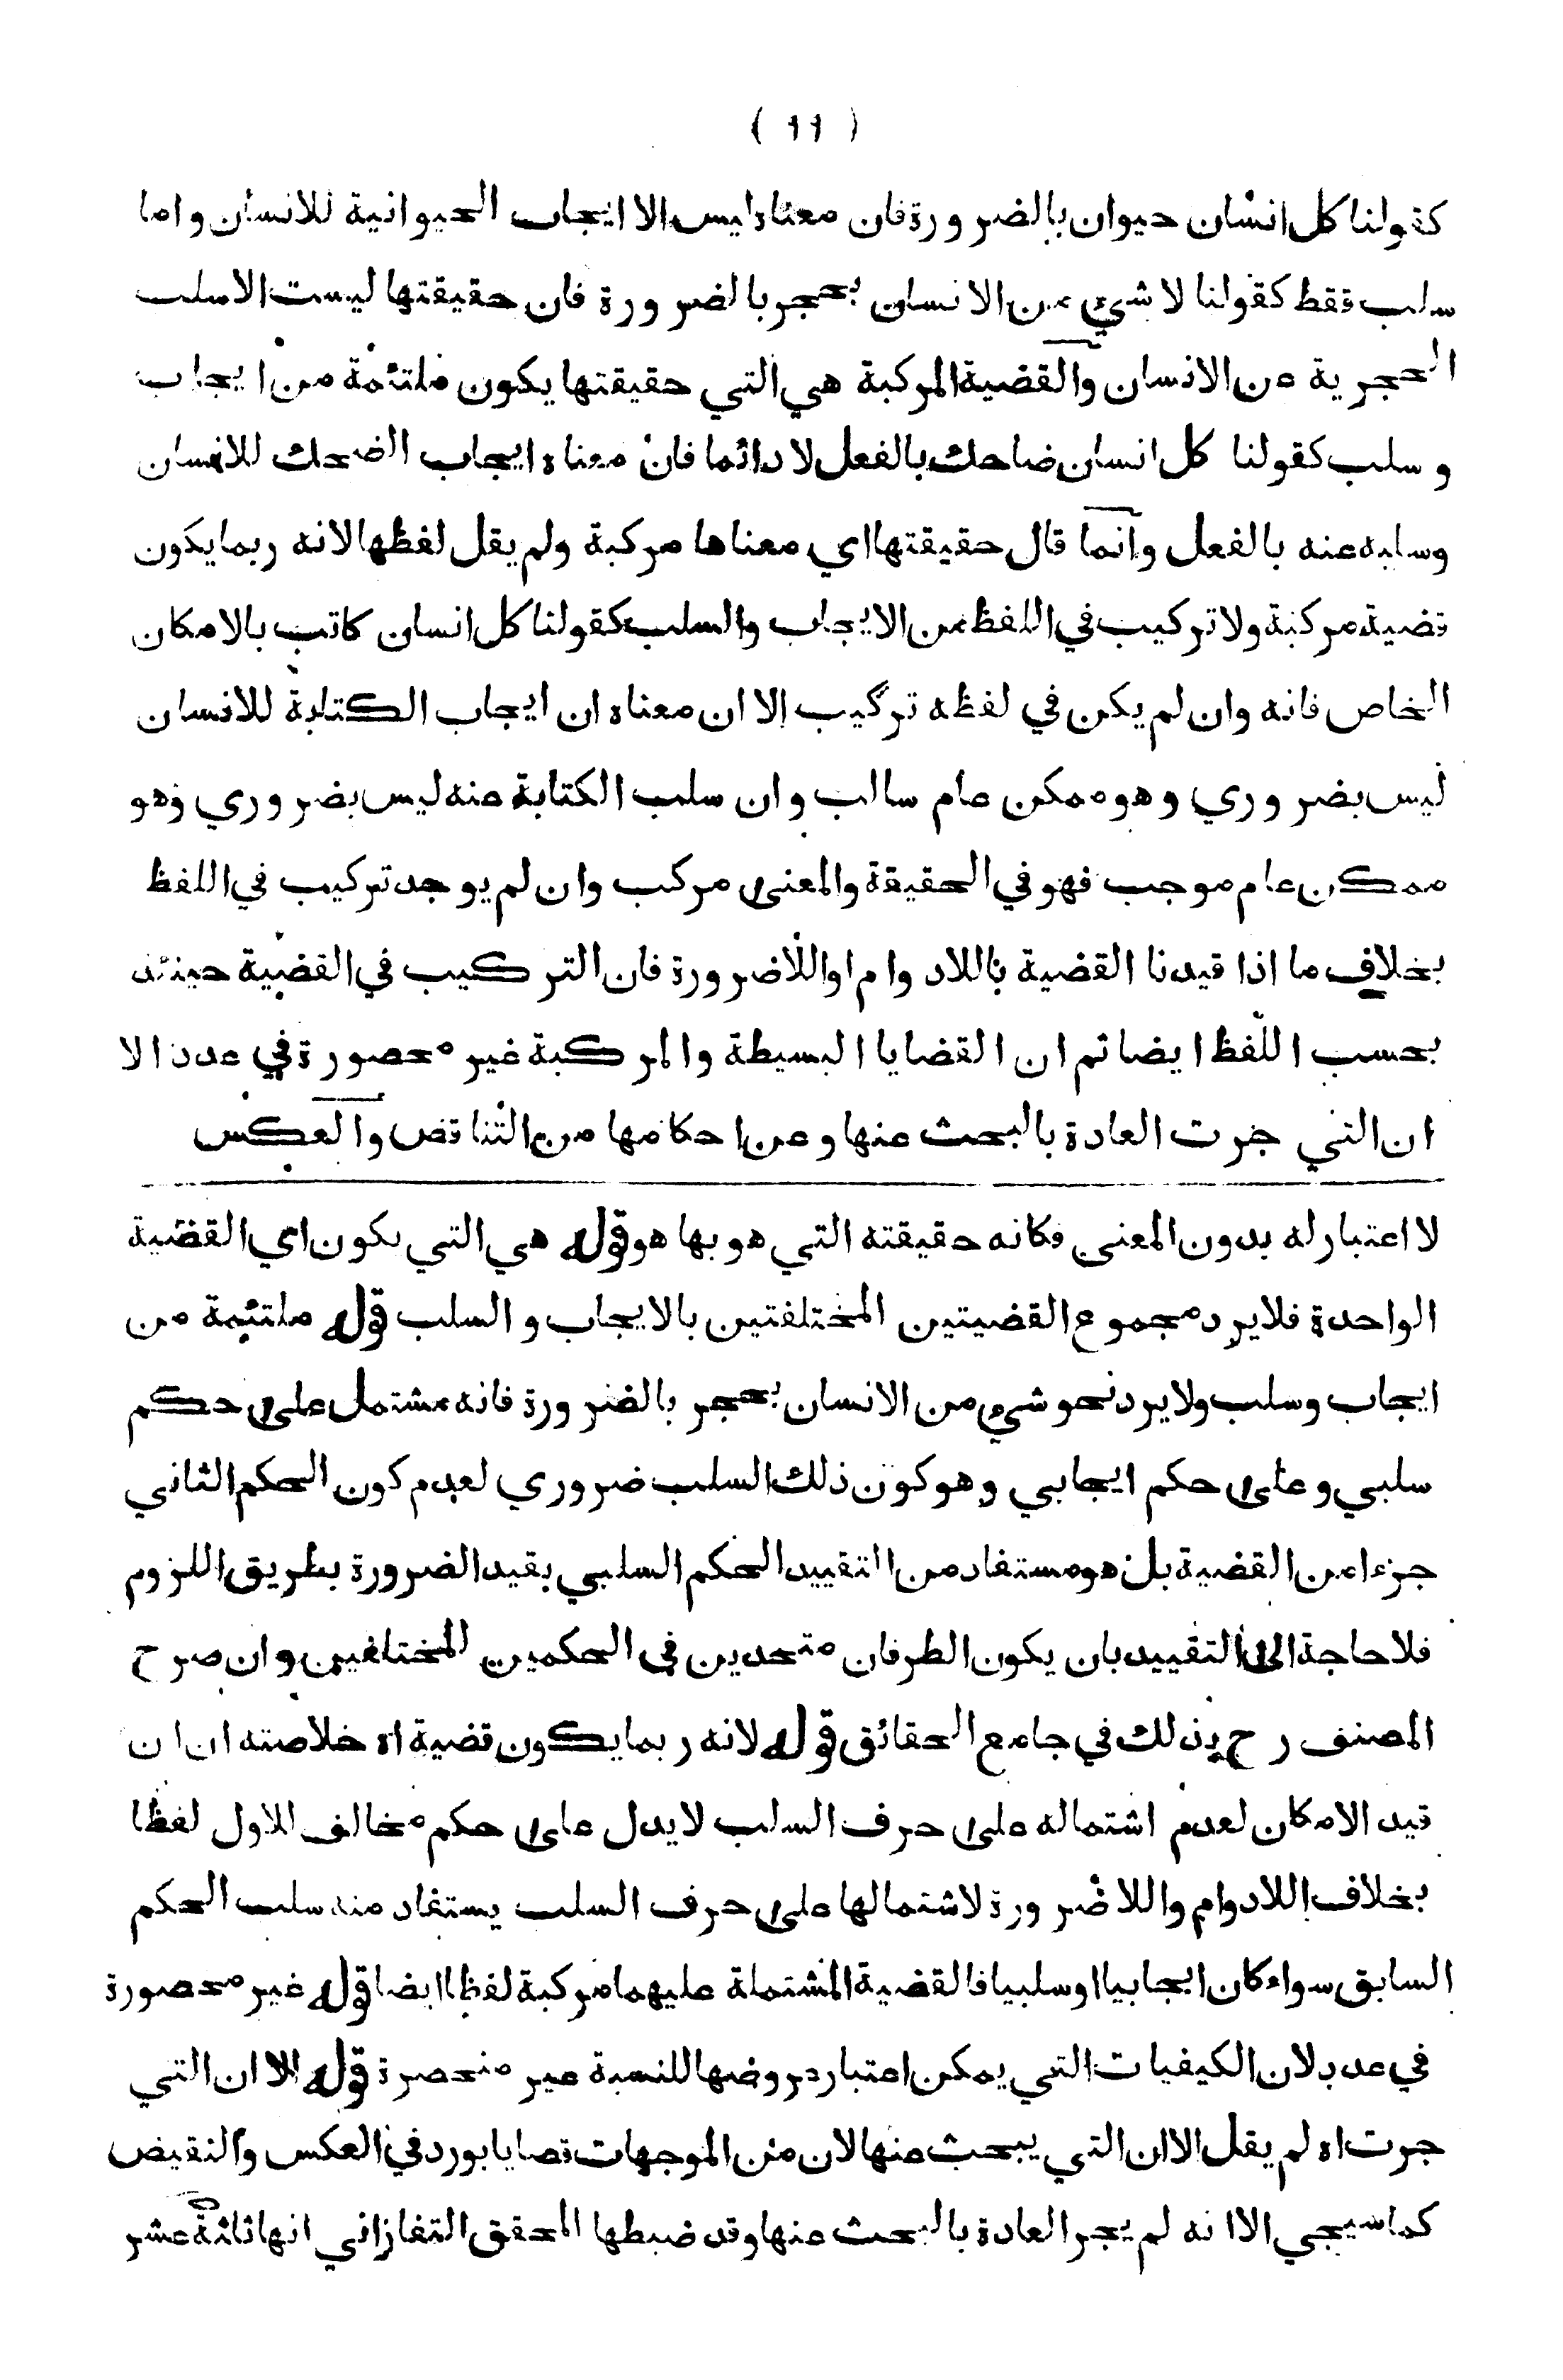 ( ١١ )
كقولنا كل انسان حيوان بالضرورة فان معناه ليس الا ايجاب الحيوانية للانسان واما
سلب فقط كقولنا لا شيء من الانسان بحجر بالضرورة فان حقيقتها ليست الا سلب
الحجرية عن الانسان والقضية المركبة هي التي حقيقتها يكون ملتئمة من ايجاب
و سلب كقولنا كل انسان ضاحك بالفعل لا دائما فان معناه ايجاب الضحك للانسان
وسلبه عنه بالفعل وانما قال حقيقتها اي معناها مركبة ولم يقل لفظها لانه ربما يكون
قضية مركبة ولا تركيب في اللفظ من الايجاب والسلب كقولنا كل انسان كاتب بالامكان
الخاص فانه وان لم يكن في لفظه تركيب الا ان معناه ان ايجاب الكتابة للانسان
ليس بضروري وهو ممكن عام سالب وان سلب الكتابة عنه ليس بضروري وهو
ممكن عام موجب فهو في الحقيقة والمعنى مركب وان لم يوجد تركيب في اللفظ
بخلاف ما اذا قيدنا القضية باللادوام او اللاضرورة فان التركيب في القضية حينئذ
بحسب اللفظ ايضا ثم ان القضايا البسيطة والمركبة غير محصورة في عدد الا
ان التي جرت العادة بالبحث عنها وعن احكامها من التناقض والعكس
لا اعتبار له بدون المعنى فكانه حقيقته التي هو بها هو قوله هي التي يكون اي القضية
الواحدة فلا يرد مجموع القضيتين المختلفتين بالايجاب و السلب قوله ملتئمة من
ايجاب وسلب ولا يرد نحو شيء من الانسان بحجر بالضرورة فانه مشتمل على حكم
سلبي وعلى حكم ايجابي وهو كون ذلك السلب ضروري لعدم كون الحكم الثاني
جزءا من القضية بل هو مستفاد من التقييد الحكم السلبي بقيد الضرورة بطريق اللزوم
فلا حاجة الى التقييد بان يكون الطرفان متحدين في الحكمين المختلفين وان صرح
المصنف رح بذلك في جامع الحقائق قوله لانه ربما يكون قضية اه خلاصته ان ان
قيد الامكان لعدم اشتماله على حرف السلب لا يدل على حكم مخالف للاول لفظا
بخلاف اللادوام واللاضرورة لاشتمالها على حرف السلب يستفاد منه سلب الحكم
السابق سواء كان ايجابيا او سلبيا فالقضية المشتملة عليهما مركبة لفظا ايضا قوله غير محصورة
في عدد لان الكيفيات التي يمكن اعتبار عروضها للنسبة غير منحصرة قوله الا ان التي
جرت اه لم يقل الا ان التي يبحث عنها لان من الموجهات قضايا يورد في العكس والنقيض
كما سيجي الا انه لم يجر العادة بالبحث عنها وقد ضبطها المحقق التفازاني انها ثلثة عشر